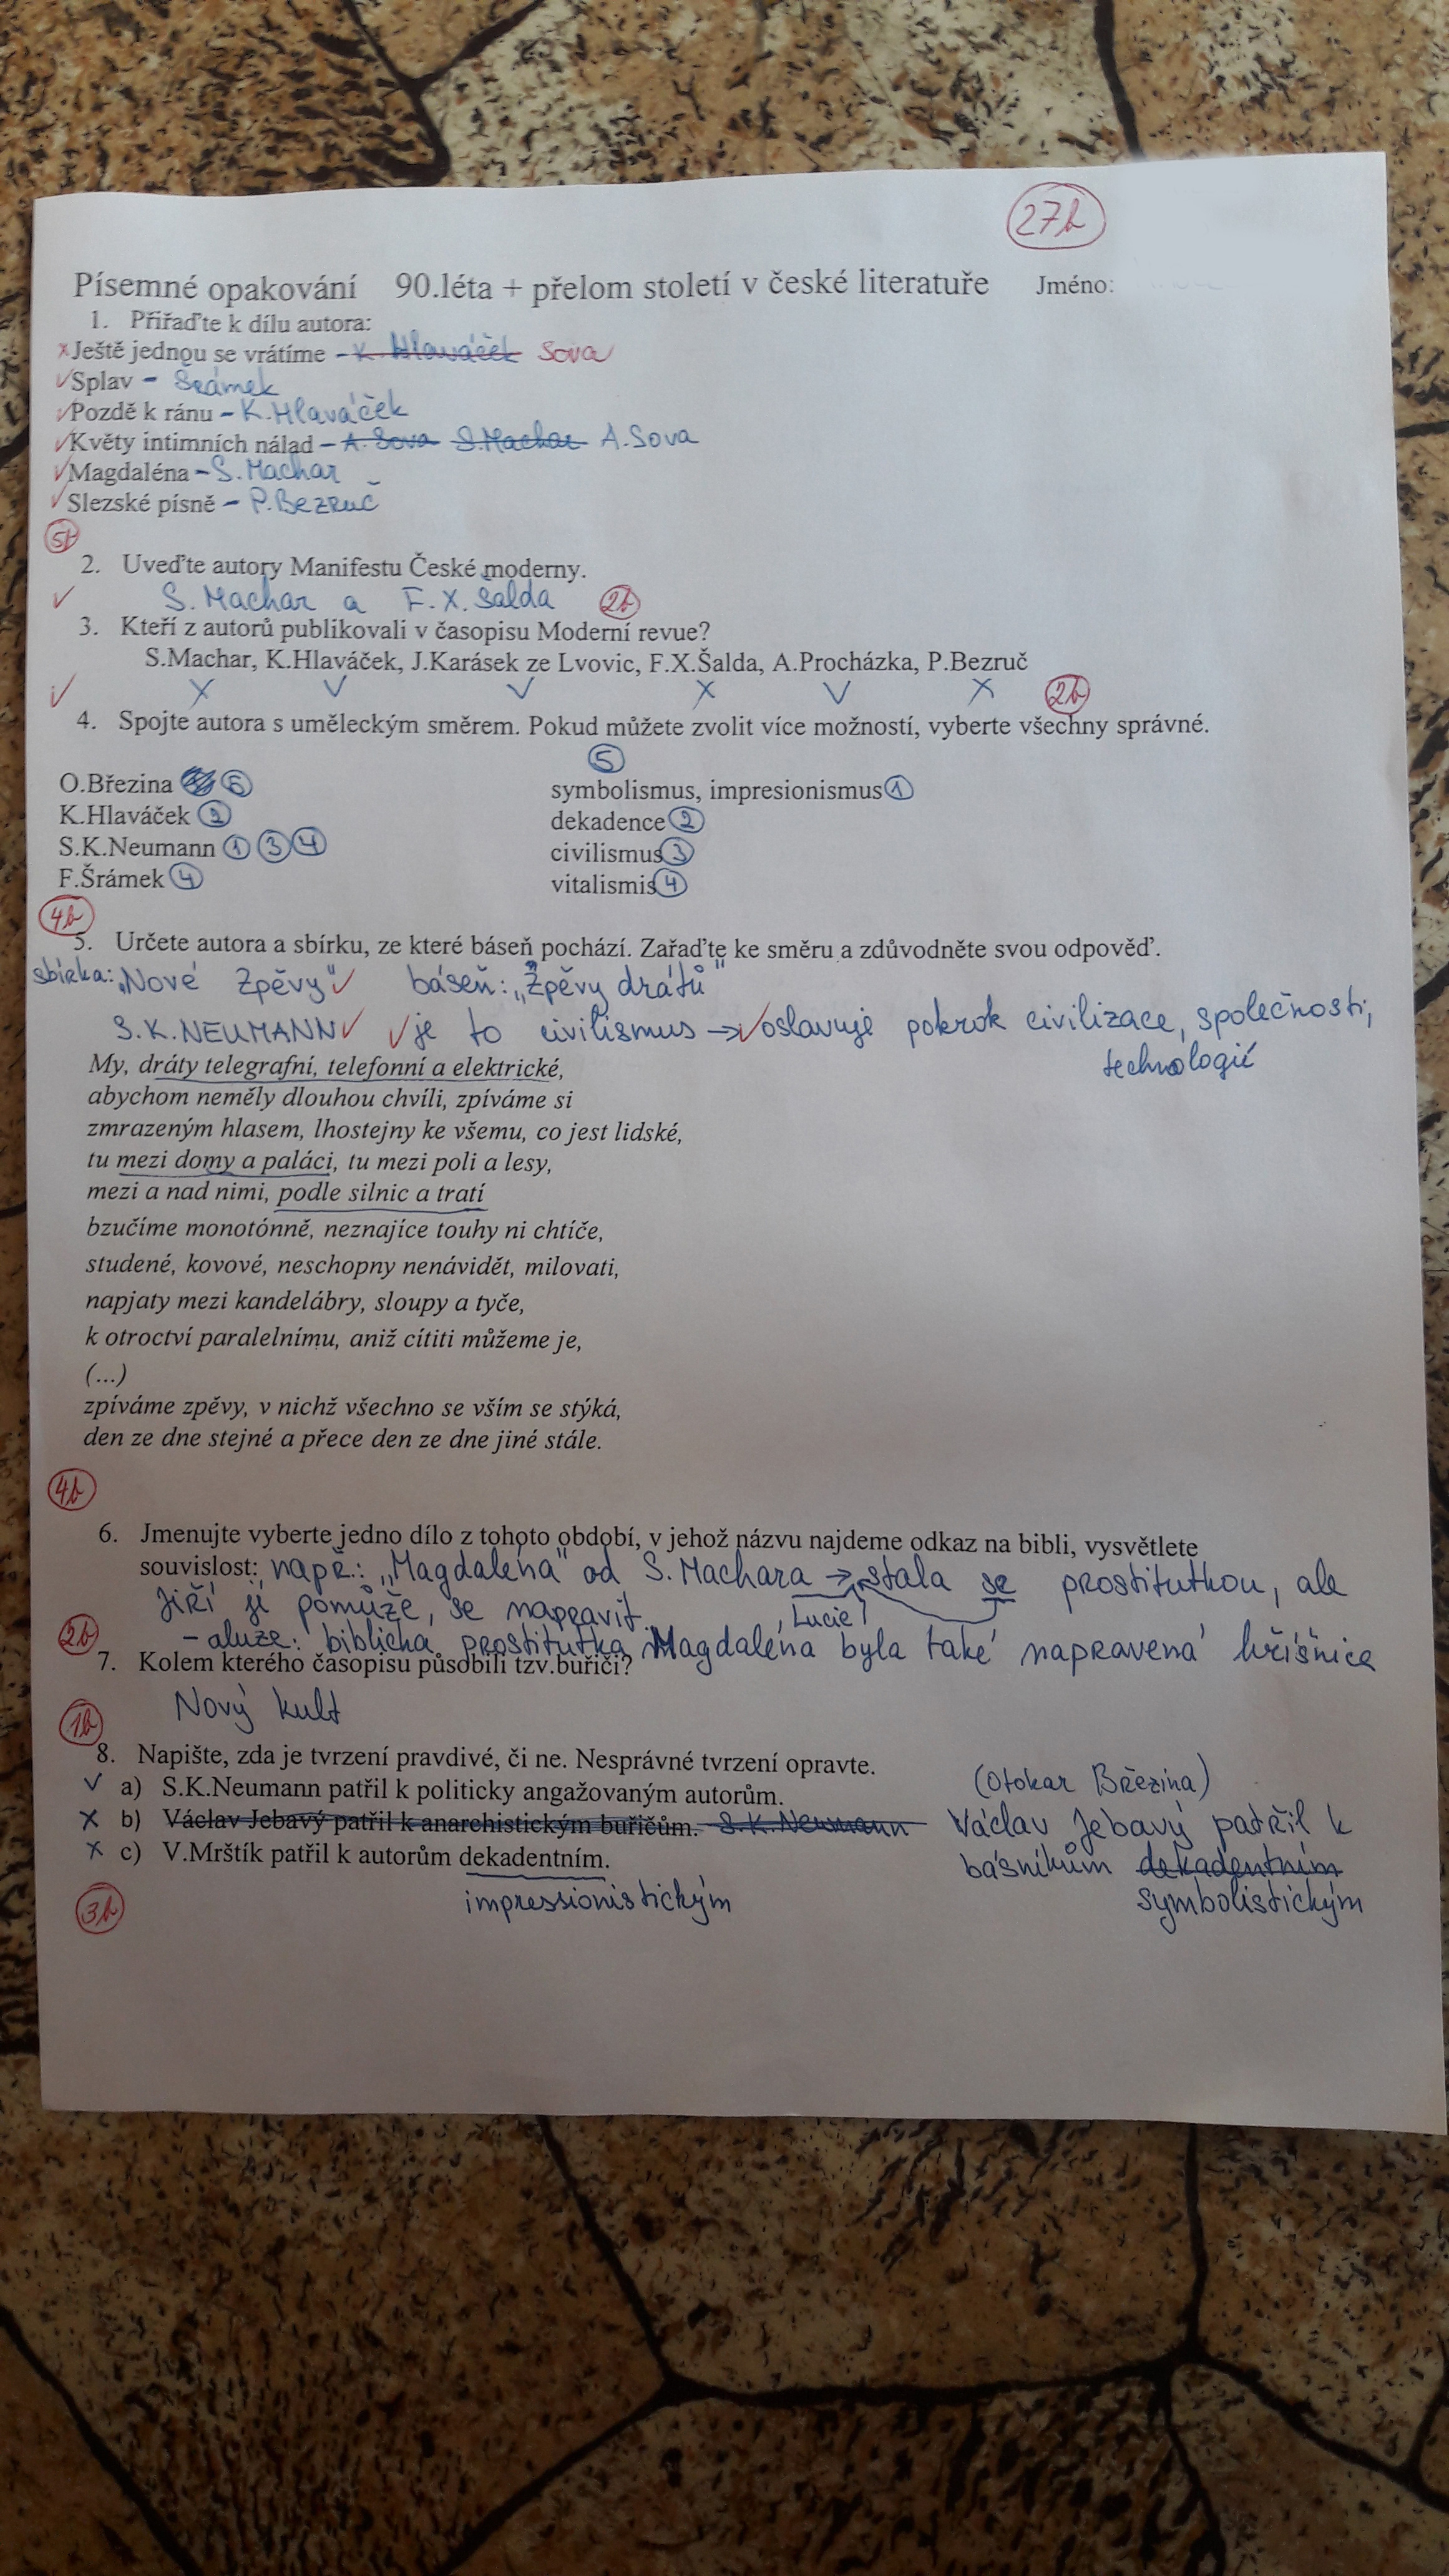 27b
Písemné opakování 90.léta + přelom století v české literatuře Jméno:
1. Přiřaďte k dílu autora:
x Ještě jednou se vrátíme - K. Hlaváček Sova
✓ Splav - Šrámek
✓ Pozdě k ránu - K. Hlaváček
✓ Květy intimních nálad - A. Sova S. Machar A. Sova
✓ Magdaléna - S. Machar
✓ Slezské písně - P. Bezruč
5b
2. Uveďte autory Manifestu České moderny.
✓ S. Machar a F. X. Šalda 2b
3. Kteří z autorů publikovali v časopisu Moderní revue?
S.Machar, K.Hlaváček, J.Karásek ze Lvovic, F.X.Šalda, A.Procházka, P.Bezruč
✓ x ✓ ✓ x ✓ x 2b
4. Spojte autora s uměleckým směrem. Pokud můžete zvolit více možností, vyberte všechny správné.
5
O.Březina 5 symbolismus, impresionismus 1
K.Hlaváček 2 dekadence 2
S.K.Neumann 1 3 4 civilismus 3
F.Šrámek 4 vitalismis 4
4b
5. Určete autora a sbírku, ze které báseň pochází. Zařaďte ke směru a zdůvodněte svou odpověď.
sbírka: „Nové Zpěvy" ✓ báseň: „Zpěvy drátů"
S. K. NEUMANN ✓ ✓ je to civilismus → ✓ oslavuje pokrok civilizace, společnosti,
technologií
My, dráty telegrafní, telefonní a elektrické,
abychom neměly dlouhou chvíli, zpíváme si
zmrazeným hlasem, lhostejny ke všemu, co jest lidské,
tu mezi domy a paláci, tu mezi poli a lesy,
mezi a nad nimi, podle silnic a tratí
bzučíme monotónně, neznajíce touhy ni chtíče,
studené, kovové, neschopny nenávidět, milovati,
napjaty mezi kandelábry, sloupy a tyče,
k otroctví paralelnímu, aniž cítiti můžeme je,
(...)
zpíváme zpěvy, v nichž všechno se vším se stýká,
den ze dne stejné a přece den ze dne jiné stále.
4b
6. Jmenujte vyberte jedno dílo z tohoto období, v jehož názvu najdeme odkaz na bibli, vysvětlete
souvislost: např.: „Magdaléna" od S. Machara → stala se prostitutkou, ale
Jiří ji pomůže, se napravit. Lucie
2b - aluze: biblická prostitutka Magdaléna byla také napravená hříšnice
7. Kolem kterého časopisu působili tzv.buřiči?
Nový kult
1b
8. Napište, zda je tvrzení pravdivé, či ne. Nesprávné tvrzení opravte.
✓ a) S.K.Neumann patřil k politicky angažovaným autorům. (Otokar Březina)
x b) Václav Jebavý patřil k anarchistickým buřičům. S. K. Neumann Václav Jebavý patřil k
x c) V.Mrštík patřil k autorům dekadentním. básníkům dekadentním
3b impressionistickým symbolistickým